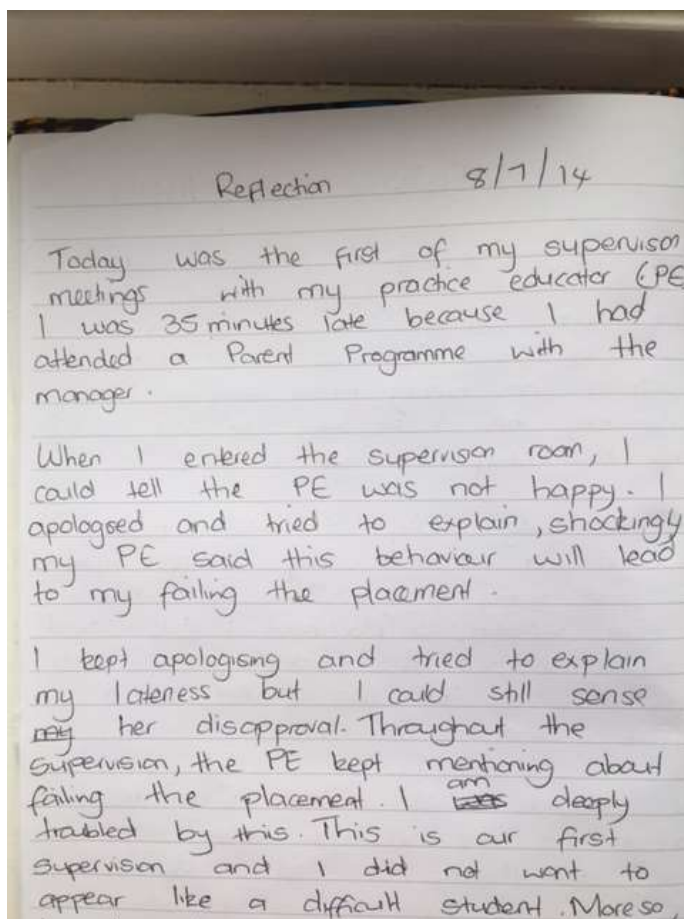 Reflection 8/7/14
Today was the first of my supervison
meetings with my practice educator (PE
I was 35 minutes late because I had
attended a Parent Programme with the
manager.
When I entered the supervision room, I
could tell the PE was not happy. I
apologised and tried to explain, shockingly
my PE said this behaviour will lead
to my failing the placement.
I kept apologising and tried to explain
my lateness but I could still sense
my her disapproval. Throughout the
supervision, the PE kept mentioning about
failing the placement. I am deeply
troubled by this. This is our first
supervision and I did not want to
appear like a difficult student. More so,